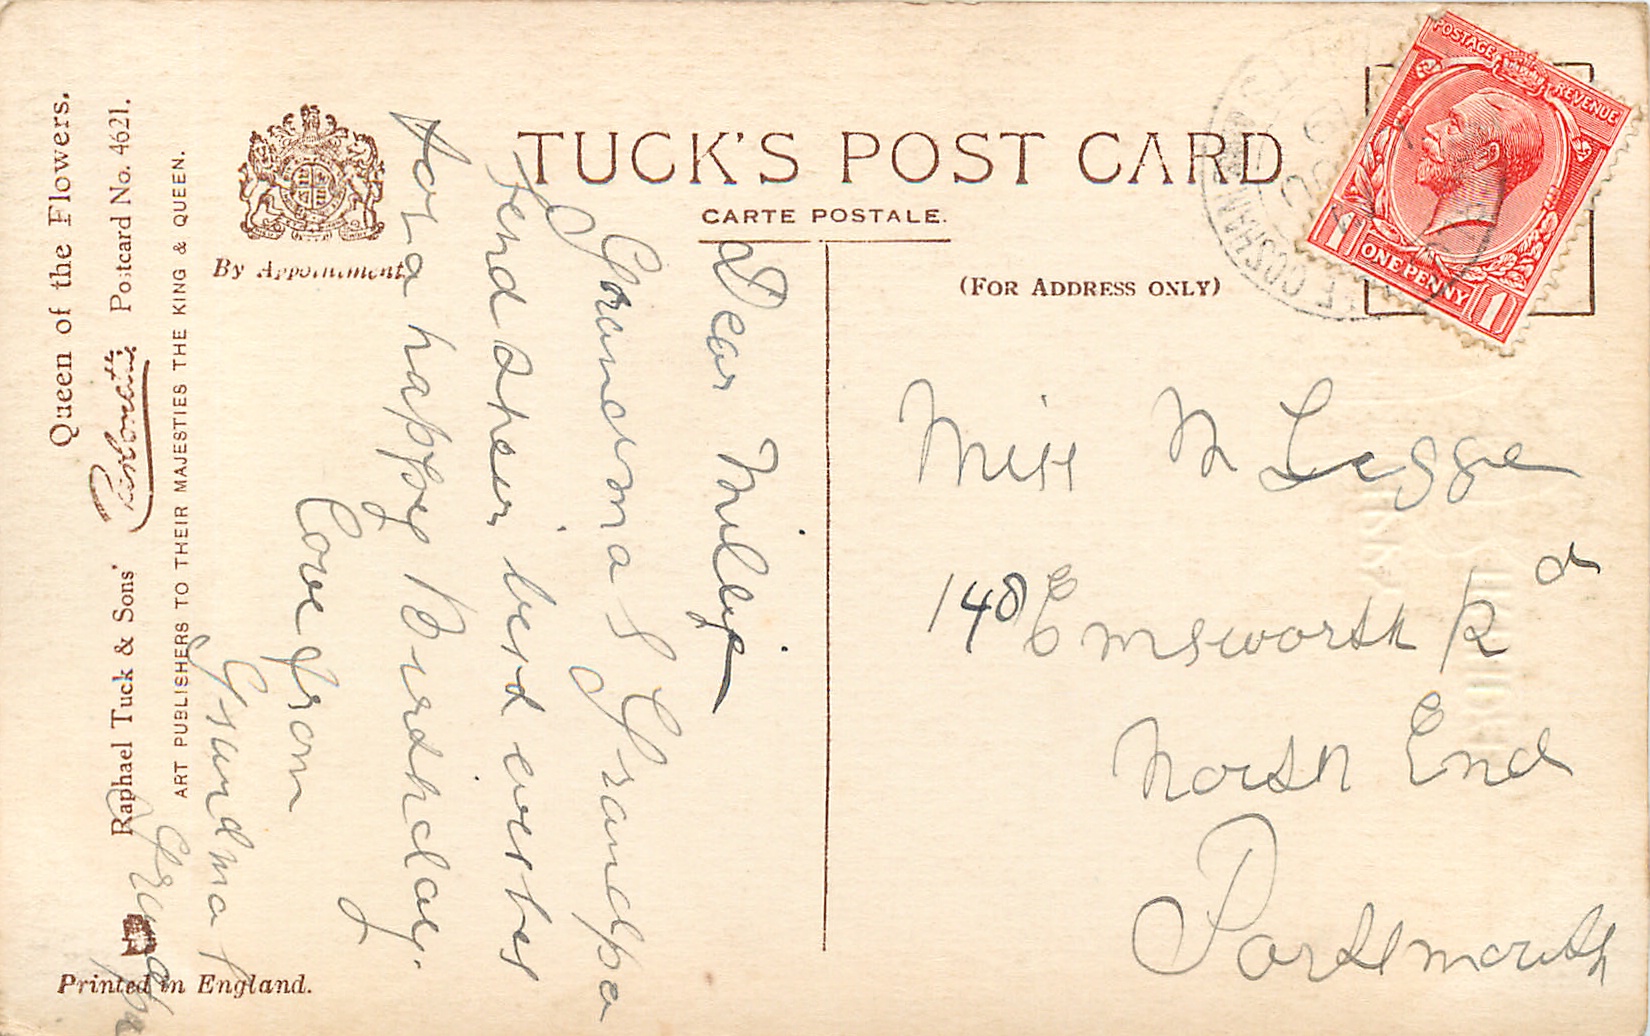 TUCK'S POST CARD
CARTE POSTALE.
(FOR ADDRESS ONLY)
By Appointment.
Queen of the Flowers.
Raphael Tuck & Sons' Postcard No. 4621.
ART PUBLISHERS TO THEIR MAJESTIES THE KING & QUEEN.
Printed in England.
POSTAGE REVENUE
1 ONE PENNY 1
COSHAM
Dear Milley
Grandma & Grandpa
send their best wishes
for a happy Birthday.
Love from
Grandma &
Grandpa
Miss M Legge
148 Emsworth Rd
North End
Portsmouth